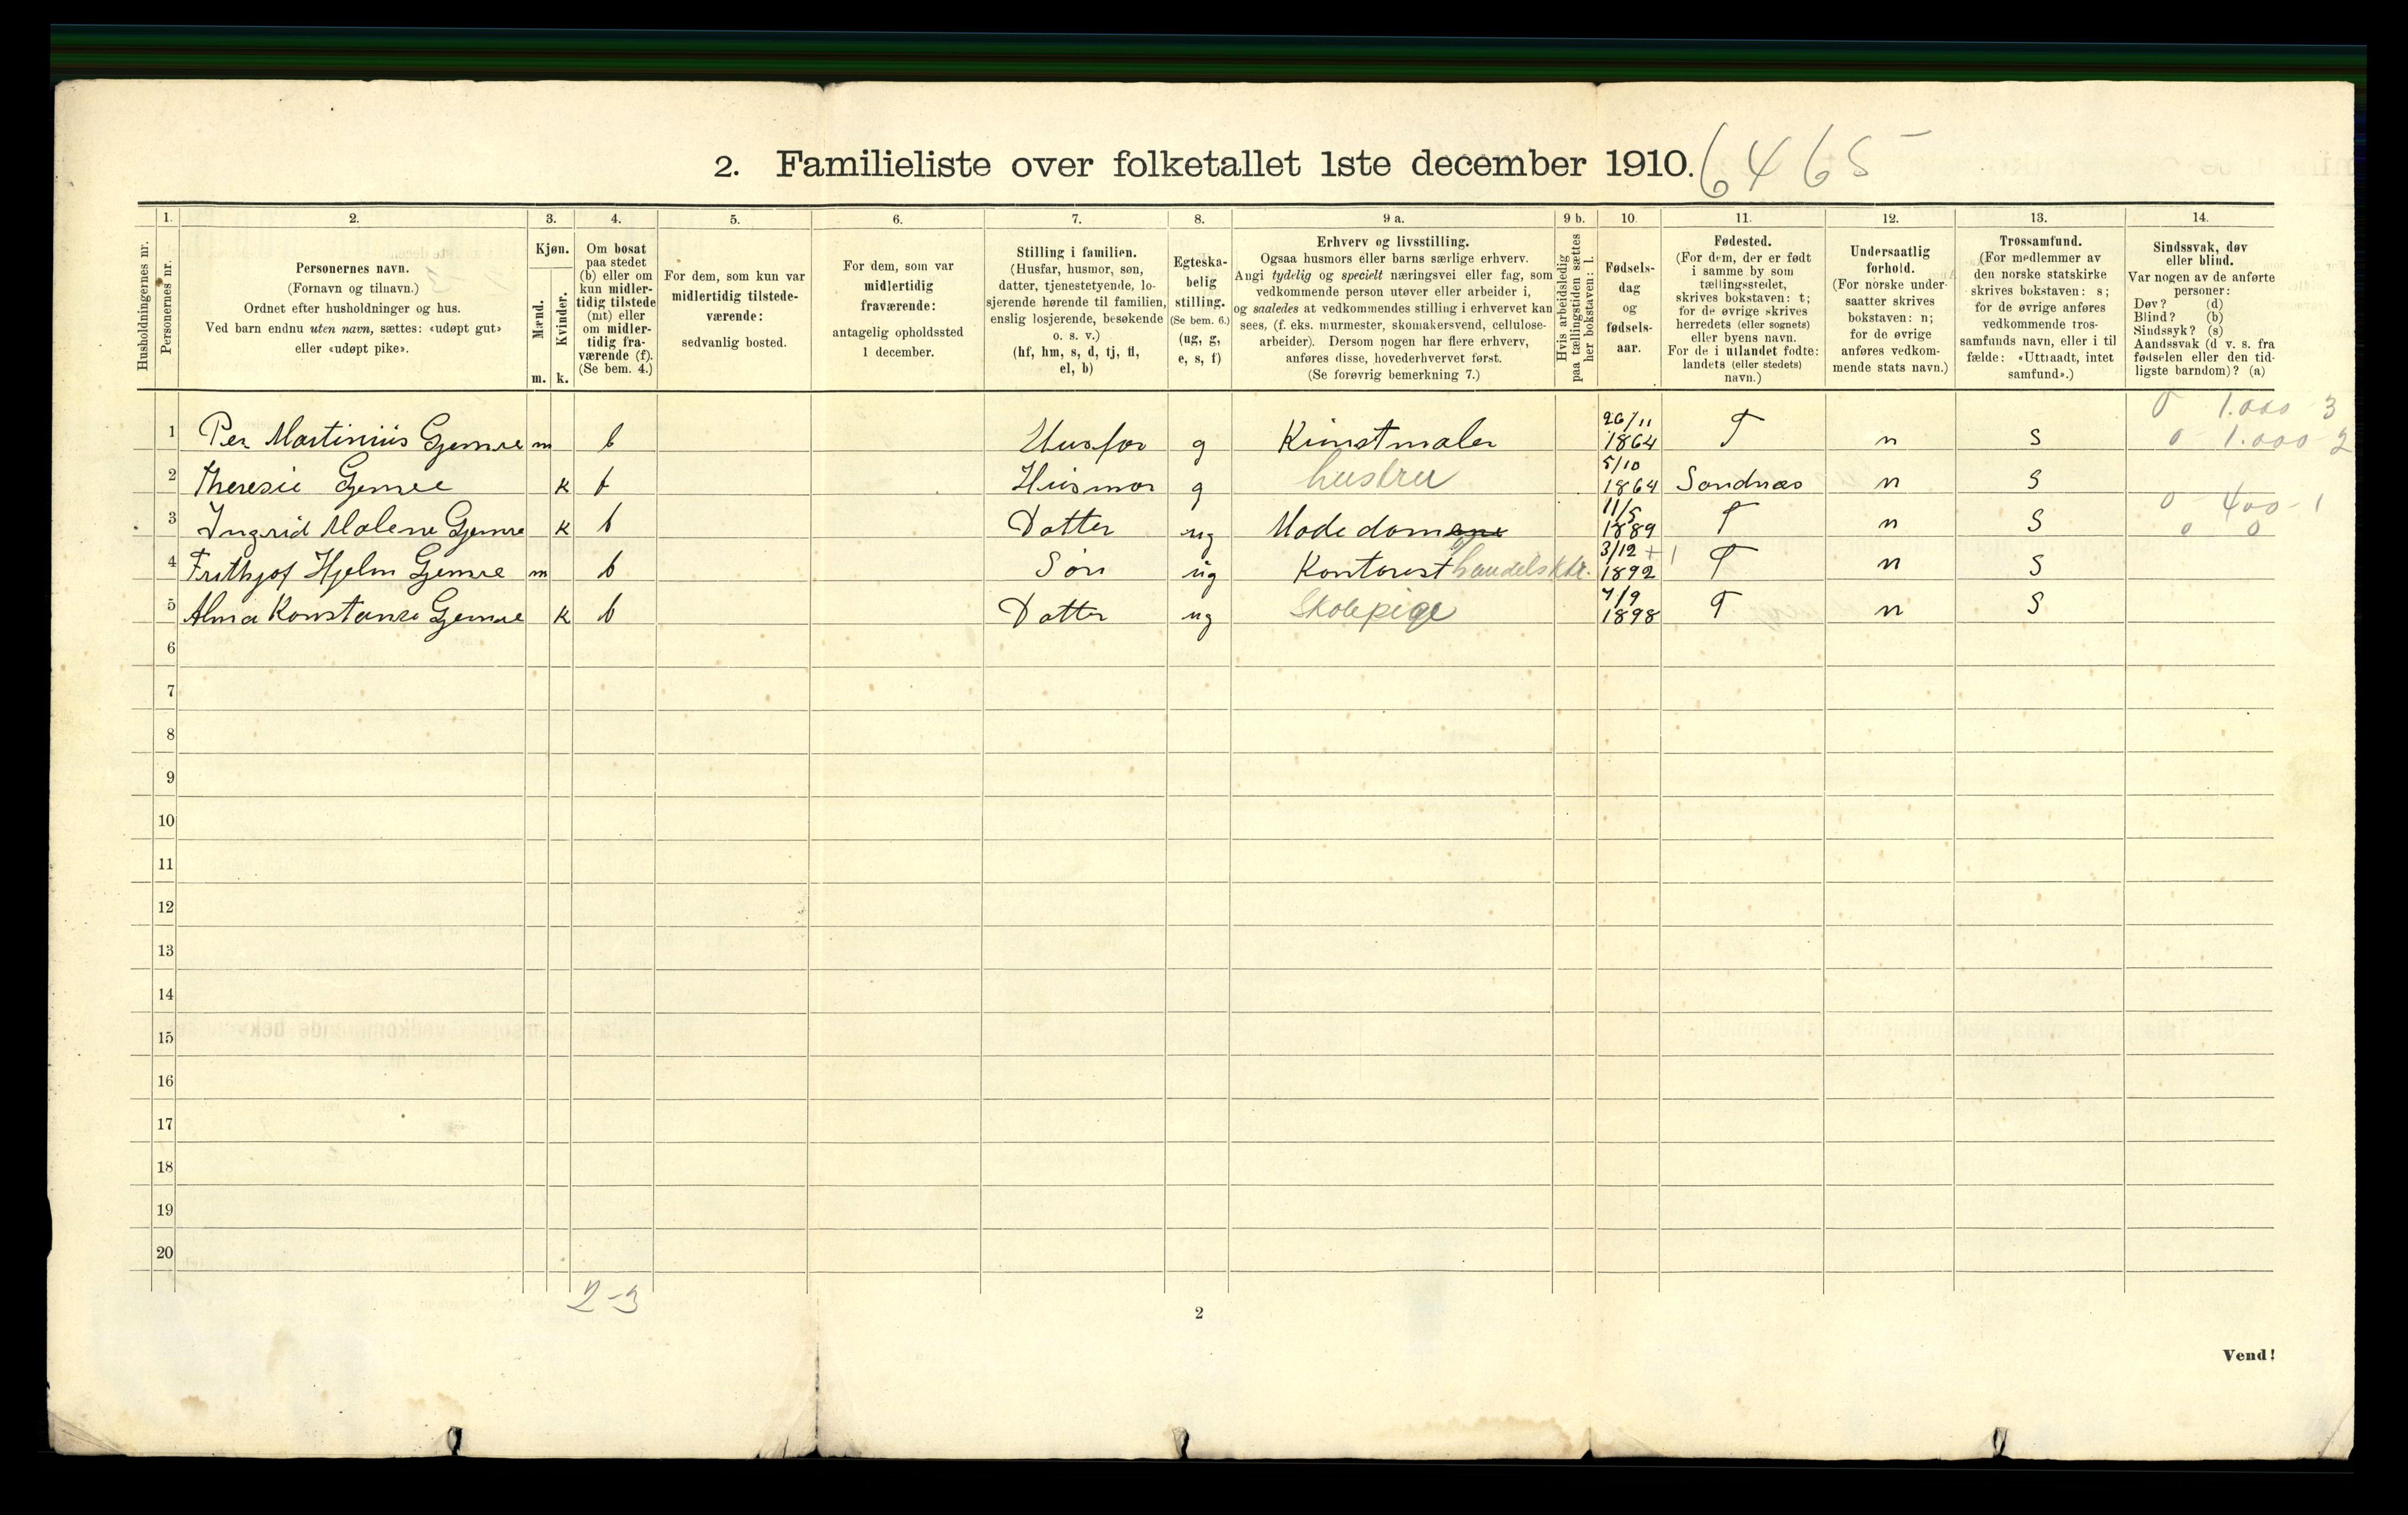 2. Familieliste over folketallet 1ste december 1910. 6465
Husholdningernes nr.
1.
Personernes nr.
2.
Personernes navn.
(Fornavn og tilnavn.)
Ordnet efter husholdninger og hus.
Ved barn endnu uten navn, sættes: «udøpt gut»
eller «udøpt pike».
3.
Kjøn.
Mænd.
Kvinder.
m. k.
4.
Om bosat
paa stedet
(b) eller om
kun midler-
tidig tilstede
(mt) eller
om midler-
tidig fra-
værende (f).
(Se bem. 4.)
5.
For dem, som kun var
midlertidig tilstede-
værende:
sedvanlig bosted.
6.
For dem, som var
midlertidig
fraværende:
antagelig opholdssted
1 december.
7.
Stilling i familien.
(Husfar, husmor, søn,
datter, tjenestetyende, lo-
sjerende hørende til familien,
enslig losjerende, besøkende
o. s. v.)
(hf, hm, s, d, tj, fl,
el, b)
8.
Egteska-
belig
stilling.
(Se bem. 6.)
(ug, g,
e, s, f)
9 a.
Erhverv og livsstilling.
Ogsaa husmors eller barns særlige erhverv.
Angi tydelig og specielt næringsvei eller fag, som
vedkommende person utøver eller arbeider i,
og saaledes at vedkommendes stilling i erhvervet kan
sees, (f. eks. murmester, skomakersvend, cellulose-
arbeider). Dersom nogen har flere erhverv,
anføres disse, hovederhvervet først.
(Se forøvrig bemerkning 7.)
9 b.
Hvis arbeidsledig
paa tællingstiden sættes
her bokstaven: l.
10.
Fødsels-
dag
og
fødsels-
aar.
11.
Fødested.
(For dem, der er født
i samme by som
tællingsstedet,
skrives bokstaven: t;
for de øvrige skrives
herredets (eller sognets)
eller byens navn.
For de i utlandet fødte:
landets (eller stedets)
navn.)
12.
Undersaatlig
forhold.
(For norske under-
saatter skrives
bokstaven: n;
for de øvrige
anføres vedkom-
mende stats navn.)
13.
Trossamfund.
(For medlemmer av
den norske statskirke
skrives bokstaven: s;
for de øvrige anføres
vedkommende tros-
samfunds navn, eller i til
fælde: «Uttraadt, intet
samfund».)
14.
Sindssvak, døv
eller blind.
Var nogen av de anførte
personer:
Døv? (d)
Blind? (b)
Sindssyk? (s)
Aandssvak (d v. s. fra
fødselen eller den tid-
ligste barndom)? (a)
0 1.000 3
1 Per Martinius Gjemre m b Husfar g Kunstmaler 26/11 1864 T n S 0 1.000 2
2 Theresie Gjemre k b Husmor g hustru 5/10 1864 Sandnæs n S
0 400 - 1
3 Ingrid Malene Gjemre k b Datter ug Modedame 11/5 1889 T n S 0 0
4 Frithjof Hjelm Gjemre m b Søn ug Kontorist handelsktr. 3/12 1892 T n S
5 Alma Konstanse Gjemre k b Datter ug Skolepige 7/9 1898 T n S
6
7
8
9
10
11
12
13
14
15
16
17
18
19
20
2-3
2
Vend!